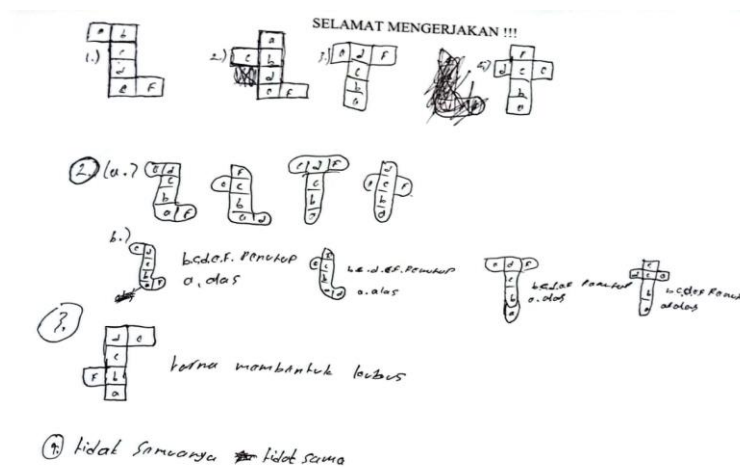 SELAMAT MENGERJAKAN !!!
1.) a b c d e F
2.) a c b d e F
3.) e d F c b a
4.) F d c e b a
2. (a.) e d c b a F
F e c b a d
e d F c b a
d e c F b a
b.) e d c b a F
b.c.d.e.F. Penutup
a. alas
b.c.d.eF. Penutup
a. alas
e d F c b a
Penutup
a. alas
a alas
3. d e c F b a
karna membentuk kubus
4. tidak Semuanya tidak sama